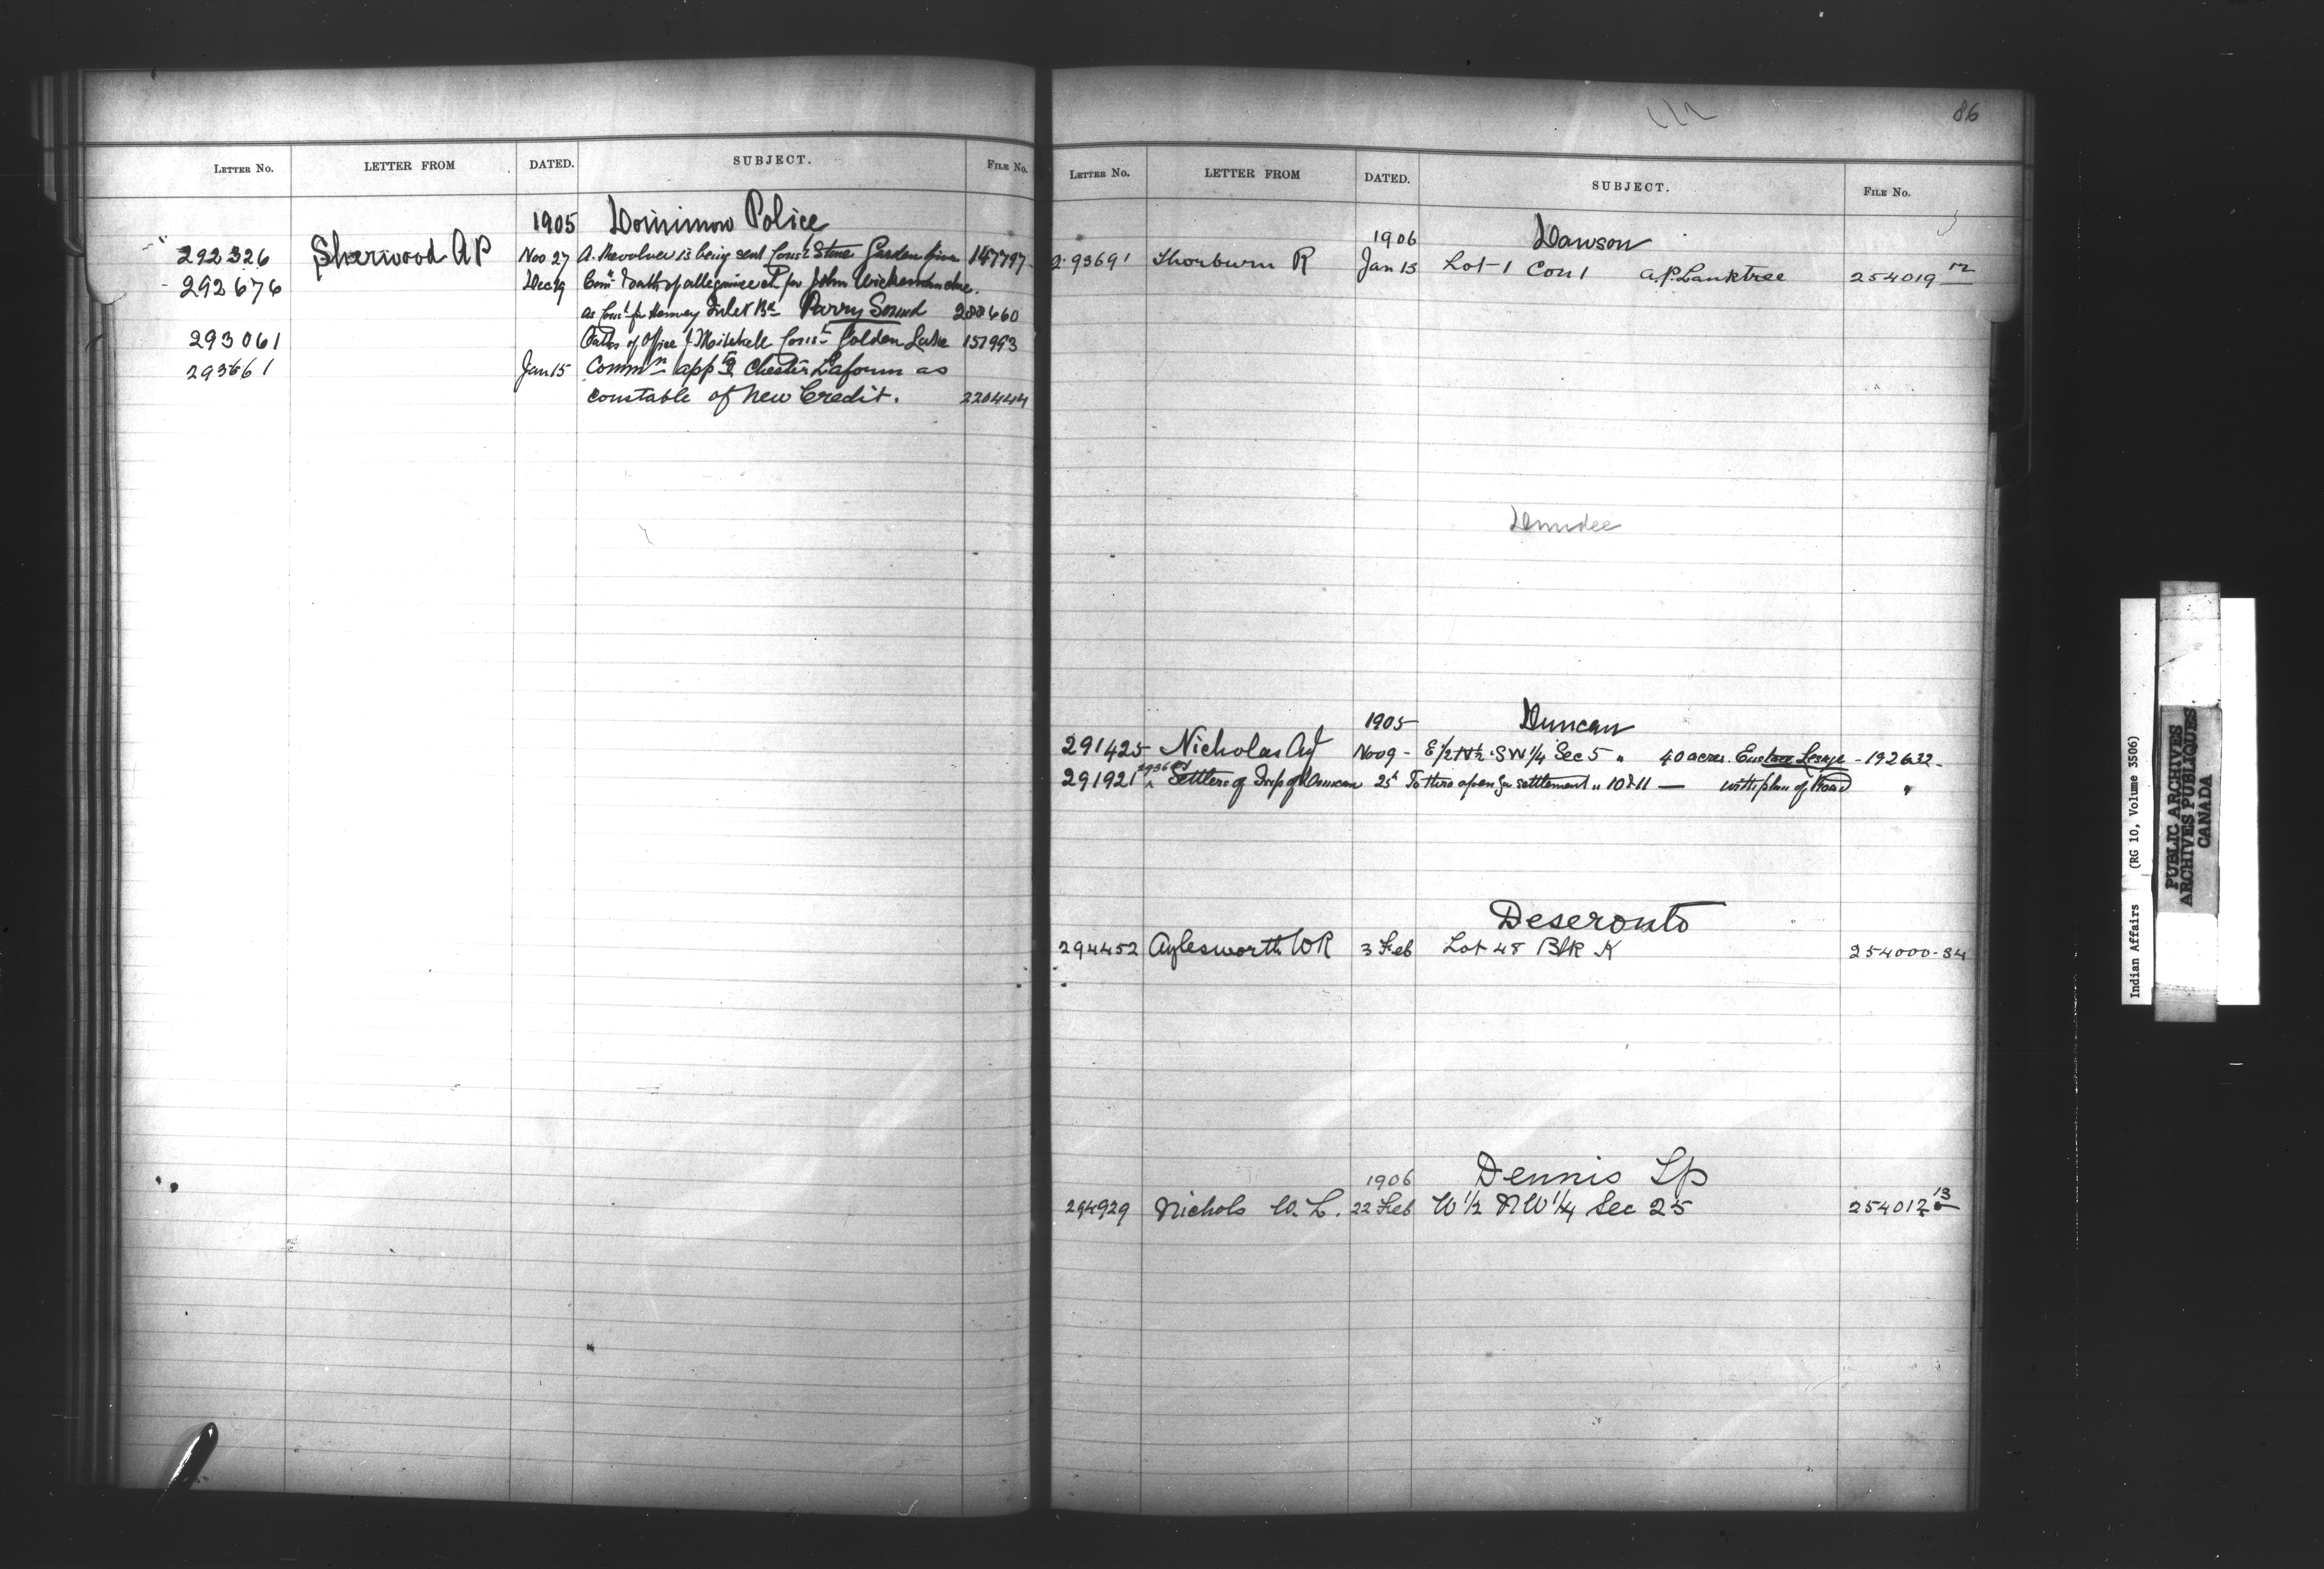 LETTER NO. LETTER FROM DATED. SUBJECT. FILE NO.
1905 Dominion Police
292326 Sherwood A P Nov 27 A. Revolver is being sent Const Stone Garden River 147797
292676 Dec 19 Com & oath of allegiance for John
as Const for Henvey Inlet Parry Sound 288660
293061 Oaths of Office Mitchell Const Golden Lake 157993
293661 Jan 15 Commn appg Chester Laform as
constable of New Credit. 220444
86
LETTER NO. LETTER FROM DATED. SUBJECT. FILE NO.
1906 Dawson
293691 Thorburn R Jan 13 Lot 1 Con 1 A.P. Lanktree 254019 12
Dundee
1905 Duncan
291425 Nicholas Nov 9 - E 1/2 N 1/2 SW 1/4 Sec 5 " 40 acres. Eustace Lesage - 192632
291921 Settlers of Twp of Duncan 25 To throw open for settlement " 10 & 11 — with plan of Road "
Deseronto
294452 Aylesworth W R 3 Feb Lot 48 Blk K 254000-34
1906 Dennis Tp
294929 Nichols W. L. 22 Feb W 1/2 N W 1/4 Sec 25 254012 13
Indian Affairs (RG 10, Volume 3506)
PUBLIC ARCHIVES
ARCHIVES PUBLIQUES
CANADA